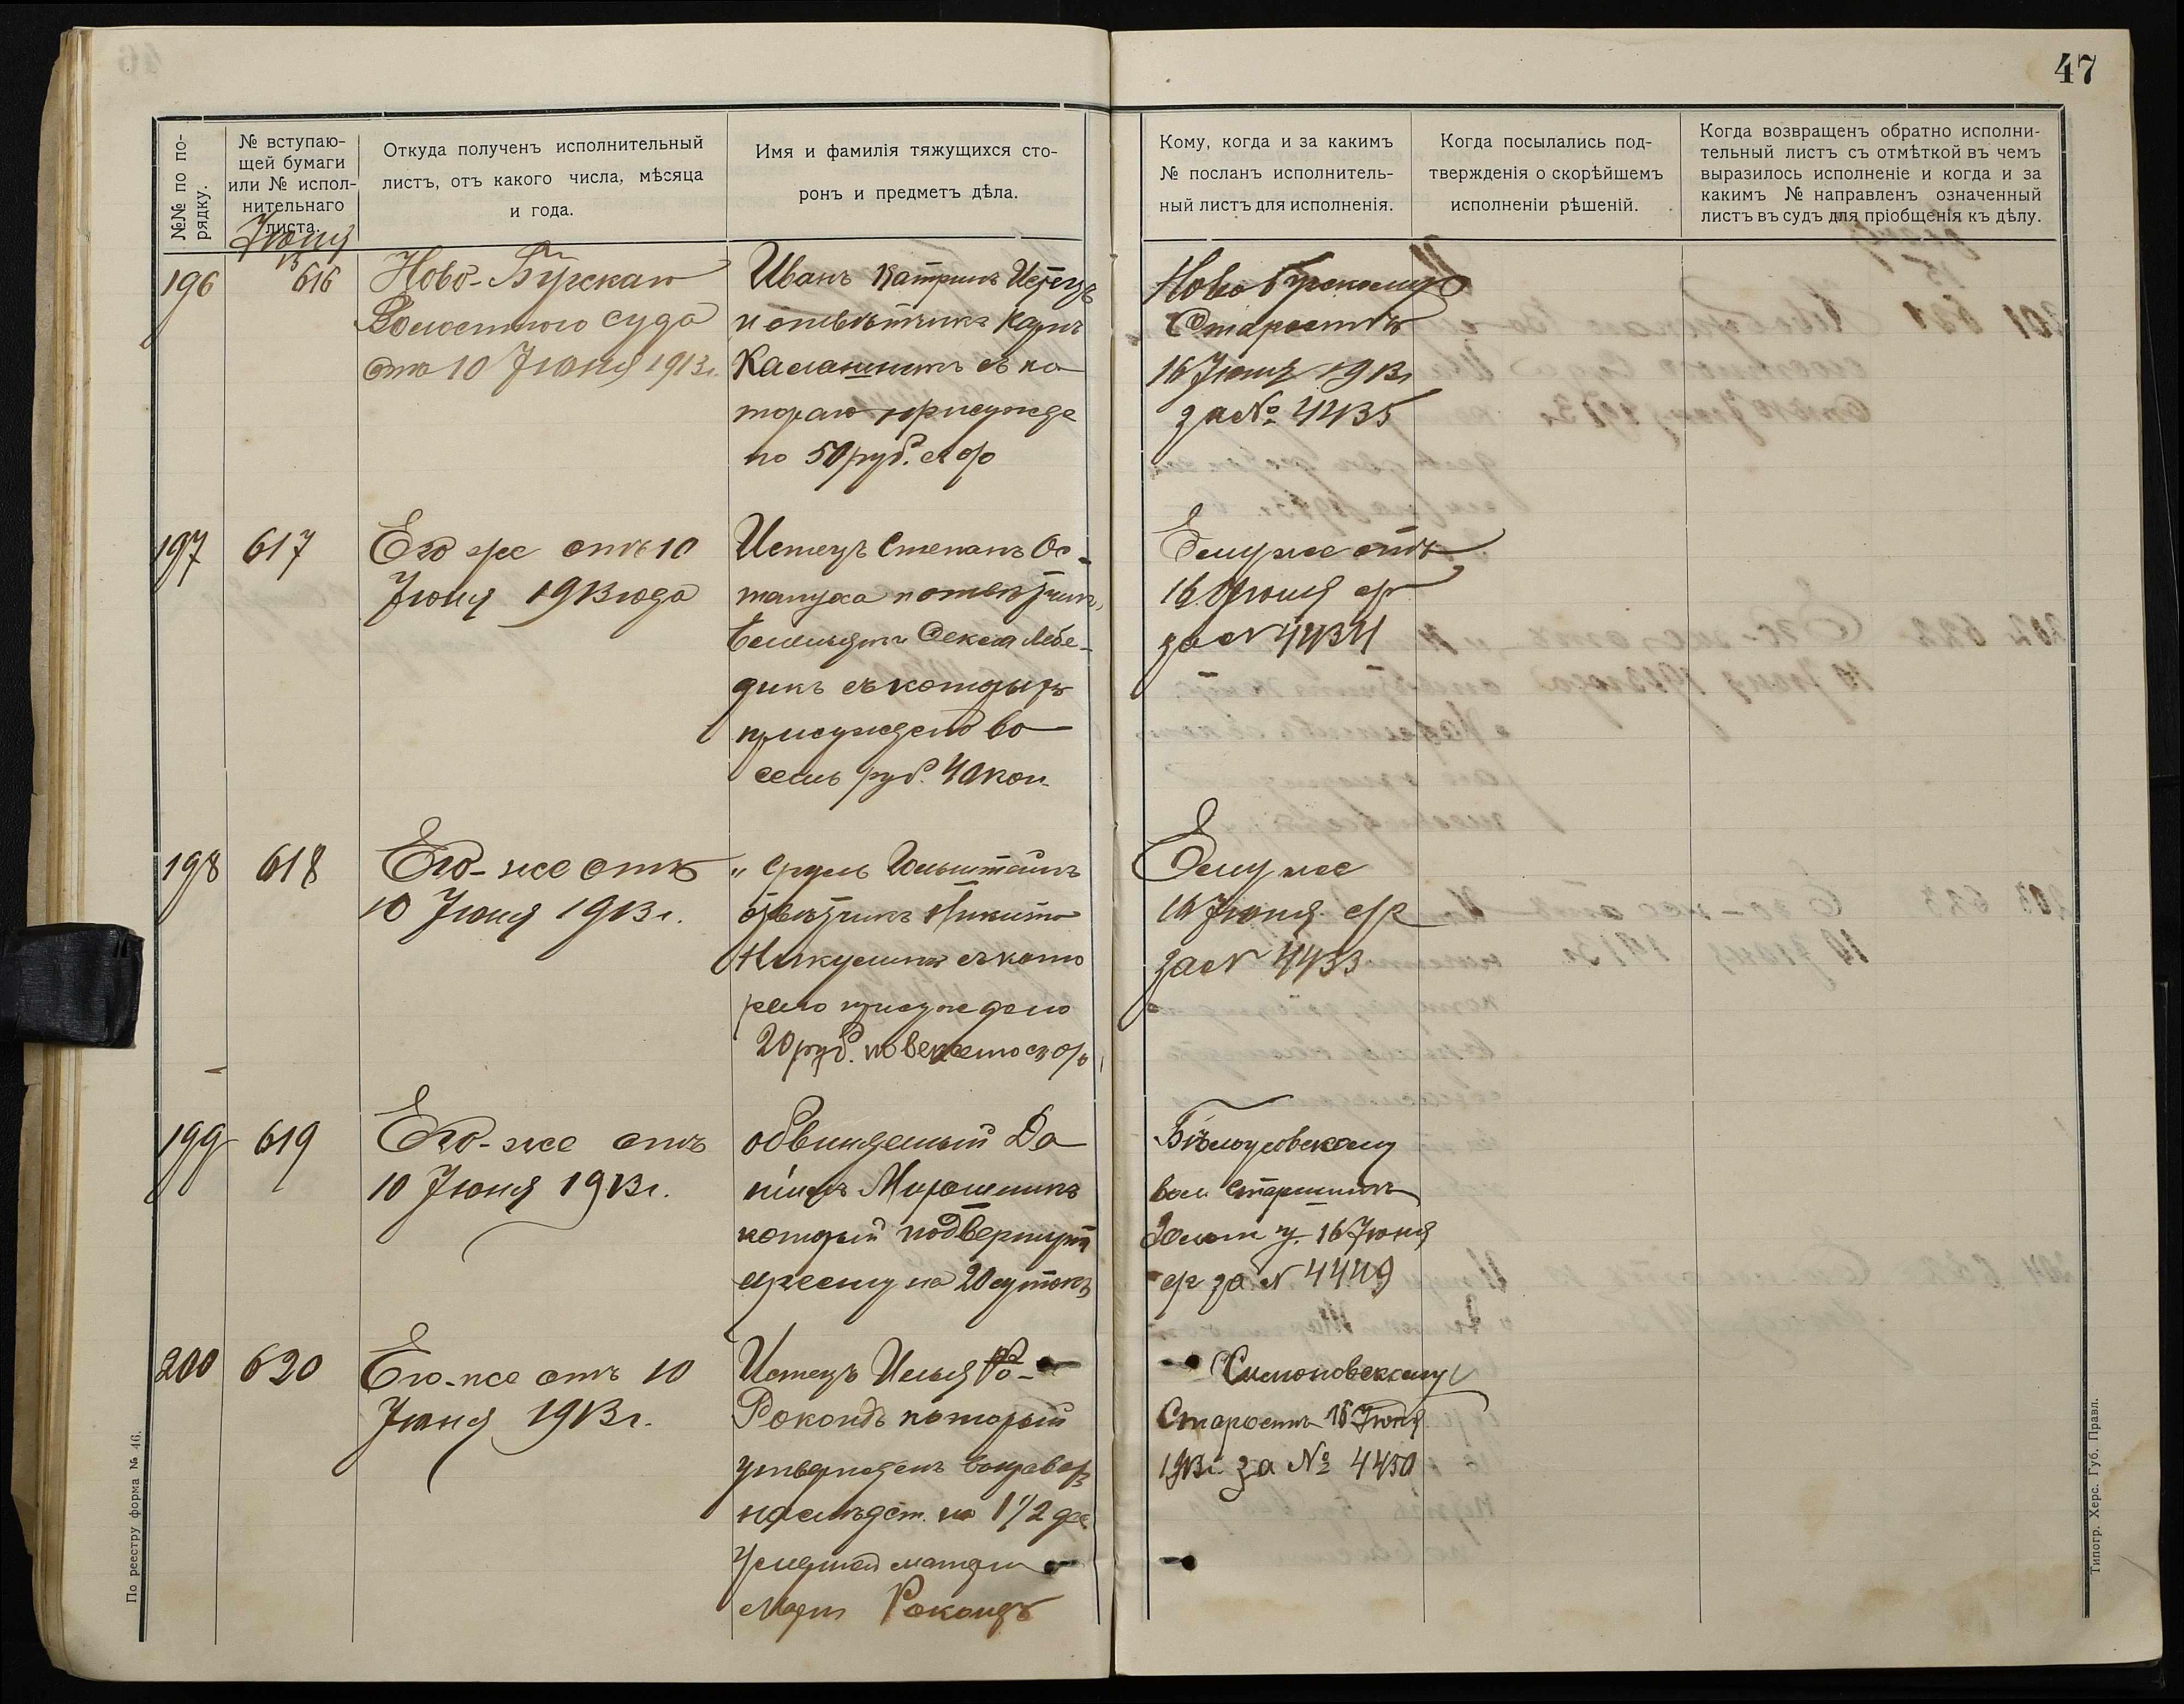 47
№№ по по-
рядку.
№ вступаю-
щей бумаги
или № испол-
нительнаго
листа.
Откуда полученъ исполнительный
листъ, отъ какого числа, мѣсяца
и года.
Имя и фамилія тяжущихся сто-
ронъ и предметъ дѣла.
Кому, когда и за какимъ
№ посланъ исполнитель-
ный листъ для исполненія.
Когда посылались под-
твержденія о скорѣйшемъ
исполненіи рѣшеній.
Когда возвращенъ обратно исполни-
тельный листъ съ отмѣткой въ чемъ
выразилось исполненіе и когда и за
какимъ № направленъ означенный
листъ въ судъ для пріобщенія къ дѣлу.
Іюня
15
196
616
Ново-Бугскаго
Волостного суда
отъ 10 Іюня 1913 г.
Иванъ Истецъ
и отвѣтчикъ Карпъ
Калашникъ съ ко
тораго присужде
но 50 руб. съ %
Новобугскому
Старостѣ
16 Іюня 1913 г
за № 4435
197
617
Его же отъ 10
Іюня 1913 года
Истецъ Степанъ Ос-
тапуха и отвѣтчикъ
Лебе-
дикъ съ которыхъ
присуждено во
семь руб. 40 коп.
Ему же отъ
16 Іюня с/г
за № 4434
198
618
Его-же отъ
10 Іюня 1913 г.
" Сруль Гольштейнъ
отвѣтчикъ Никита
Никулинъ съ кото
раго присуждено
20 руб. по векселю съ %
Ему же
16 Іюня с/г
за № 4433
199
619
Его-же отъ
10 Іюня 1913 г.
обвиняемый Да
ніилъ Мирошникъ
который подвергнутъ
аресту на 20 сутокъ
вол старшинѣ
16 Іюня
с/г за № 4449
200
620
Его-же отъ 10
Іюня 1913 г.
Истецъ Илья Ро-
Рокондъ который
утвержденъ въ правахъ
наслѣдст. на 1 1/2 дес.
Умершей матери
Маріи Рокондъ
Симоновскому
Старостѣ 16 Іюня
1913 г. за № 4450
По реестру форма № 46.
Типогр. Херс. Губ. Правл.